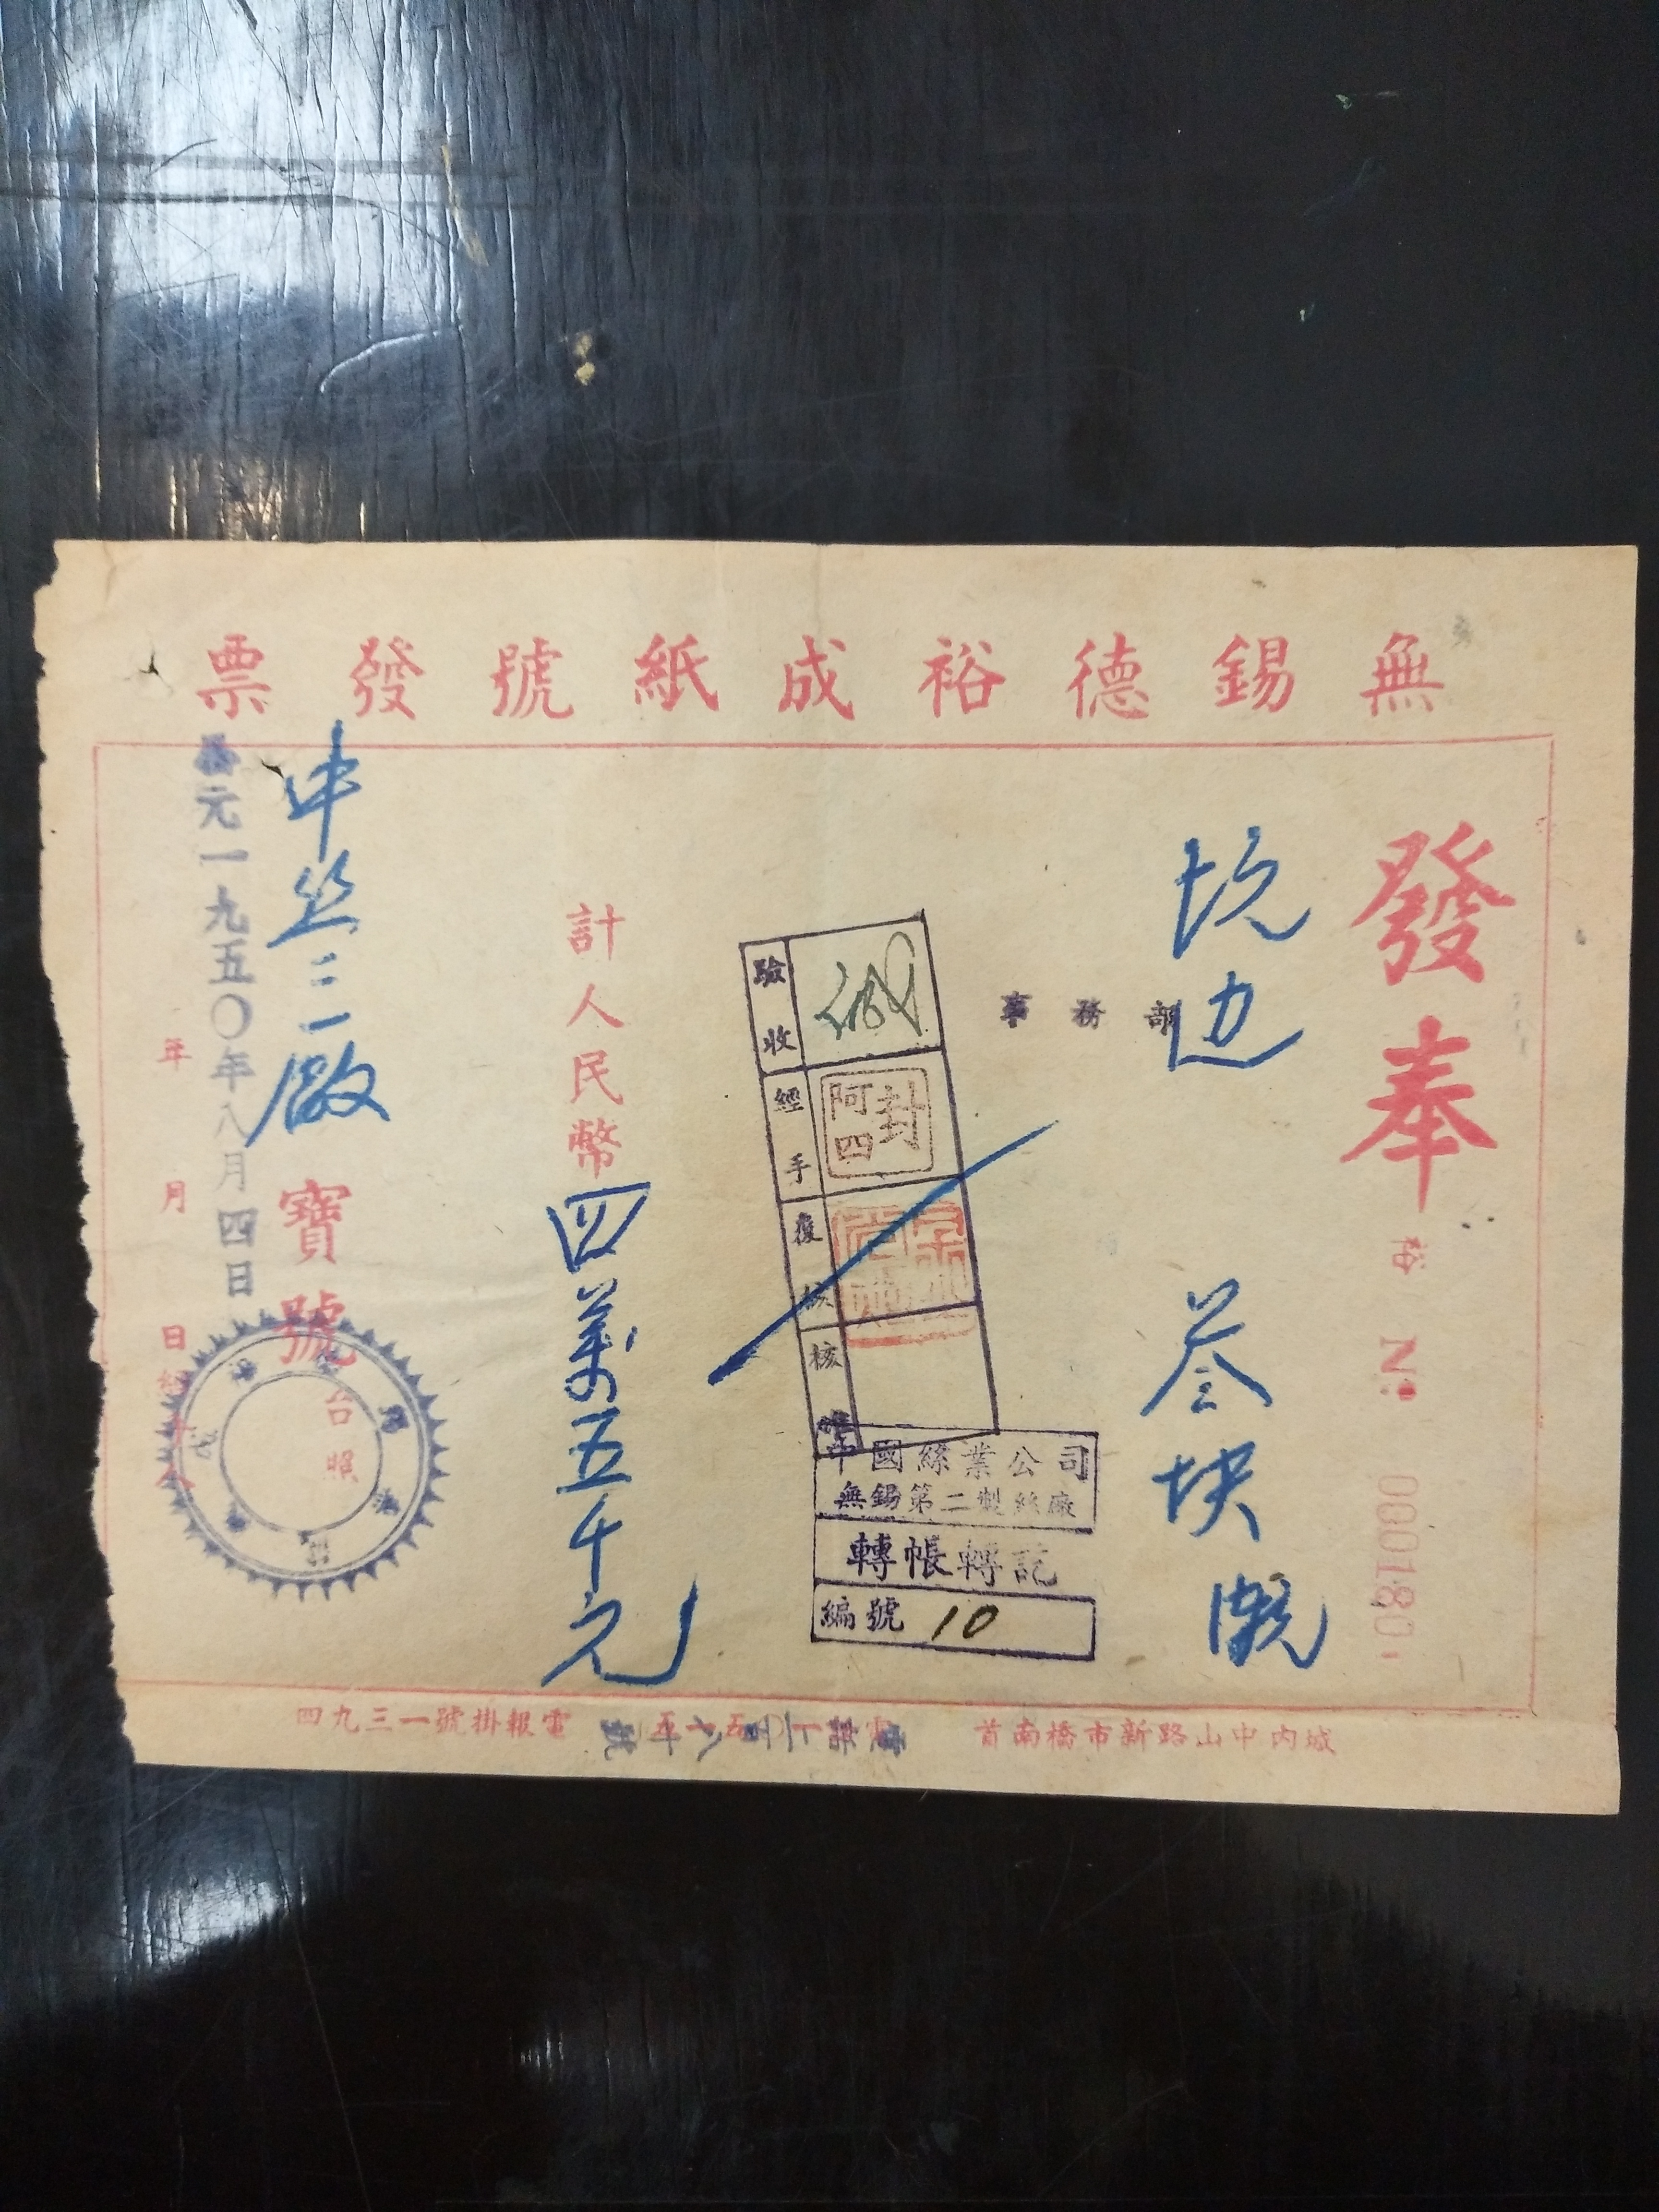 無錫德裕成紙號發票
發奉
裕 № 0001801
坑边 叁块
事務部
驗收
經手
封阿四
復核
核准
中國絲業公司
無錫第二製絲廠
轉帳轉訖
編號 10
計人民幣四萬五千元
中丝二廠 寶號 台照
元一九五〇年八月四日
年 月 日
城內中山路新市橋南首
電報掛號一三九四